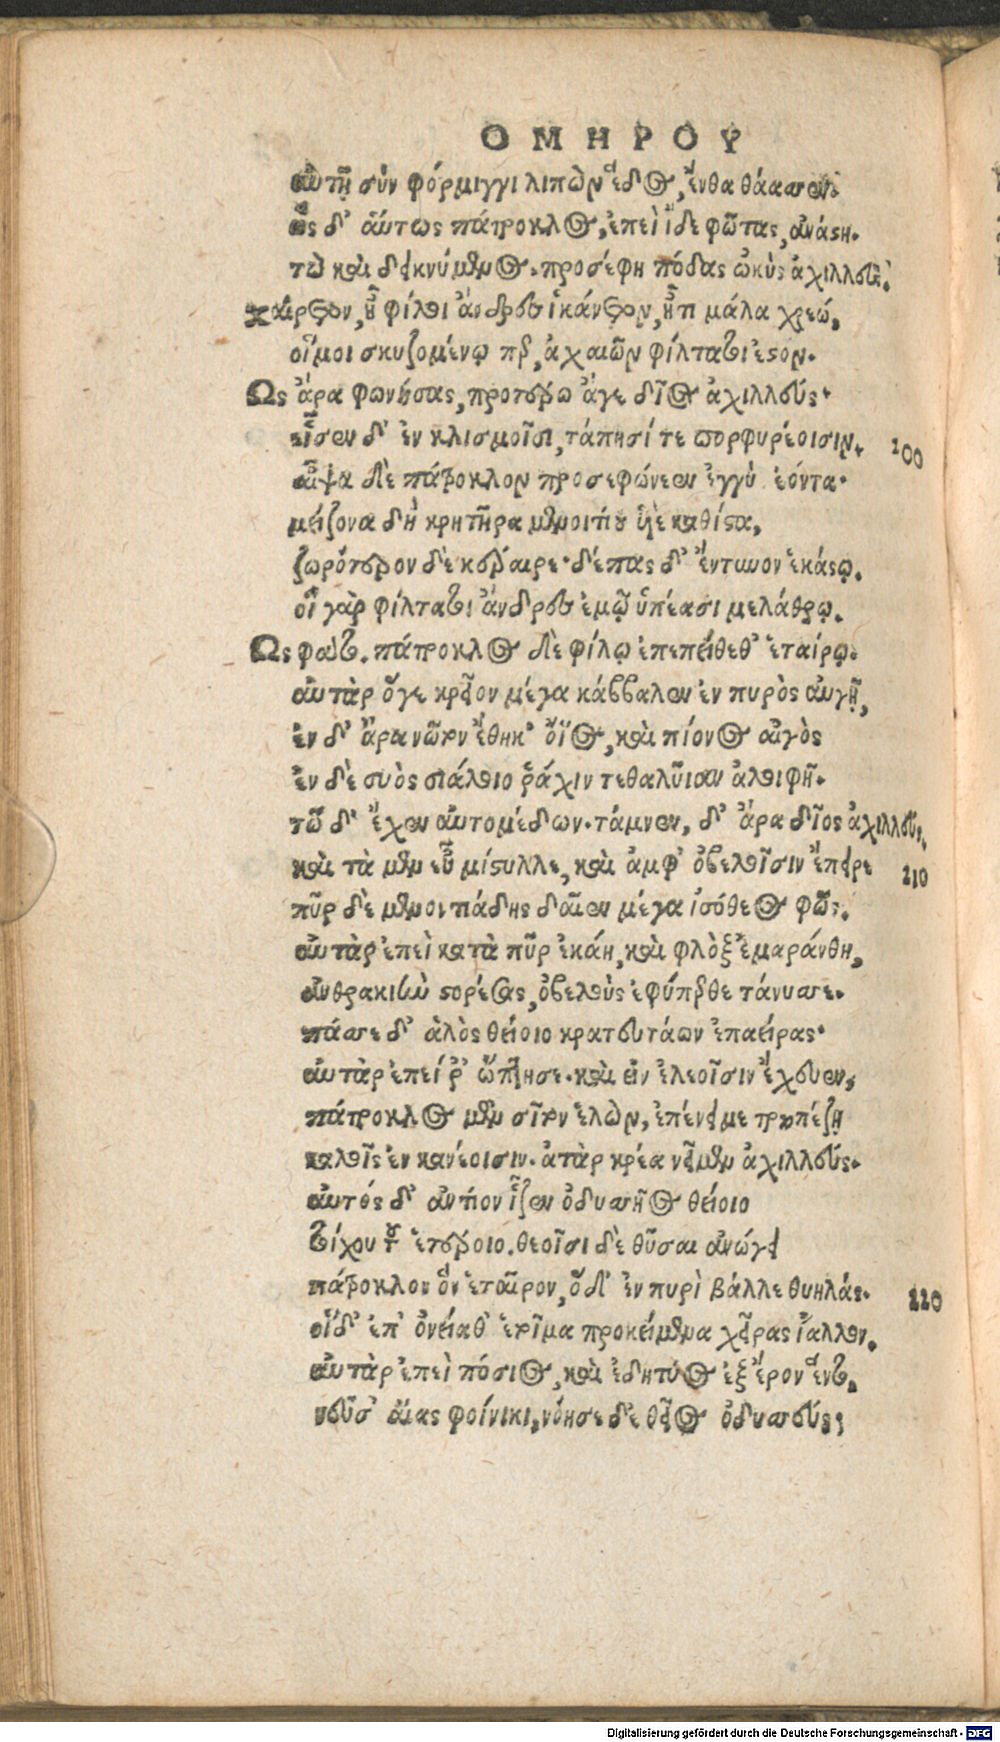 ΟΜΗΡΟΥ
αὐτῇ σὺν φόρμιγγι λιπὼν ἕδος, ἔνθα θάασσεν.
ὣς δ' αὔτως πάτροκλος, ἐπεὶ ἴδε φῶτας, ἀνάστη.
τὼ καὶ δεικνύμενος. προσέφη πόδας ὠκὺς ἀχιλλεύς.
χαίρετον, ἦ φίλοι ἄνδρες ἱκάνετον, ἦ τι μάλα χρεώ,
οἵ μοι σκυζομένῳ περ, ἀχαιῶν φίλτατοι ἐστον.
Ως ἄρα φωνήσας, προτέρω ἄγε δῖος ἀχιλλεύς.
εἷσεν δ' ἐν κλισμοῖσι, τάπησί τε πορφυρέοισιν. 100
αἶψα δὲ πάτροκλον προσεφώνεεν ἐγγὺ ἐόντα.
μείζονα δὴ κρητῆρα μενοιτίου υἱὲ καθίστα,
ζωρότερον δὲ κέραιρε. δέπας δ' ἔντυνον ἑκάστῳ.
οἳ γὰρ φίλτατοι ἄνδρες ἐμῷ ὑπέασι μελάθρῳ.
Ως φάτο. πάτροκλος δὲ φίλῳ ἐπεπείθεθ' ἑταίρῳ.
αὐτὰρ ὅγε κρεῖον μέγα κάββαλεν ἐν πυρὸς αὐγῇ,
ἐν δ' ἄρα νῶτον ἔθηκ' ὄϊος, καὶ πίονος αἰγὸς
ἐν δὲ συὸς σιάλοιο ῥάχιν τεθαλυῖαν ἀλοιφῆ.
τῷ δ' ἔχεν αὐτομέδων. τάμνεν, δ' ἄρα δῖος ἀχιλλεύς,
καὶ τὰ μὲν εὖ μίστυλλε, καὶ ἀμφ' ὀβελοῖσιν ἔπειρε 210
πῦρ δὲ μενοιτιάδης δαῖεν μέγα ἰσόθεος φώς.
αὐτὰρ ἐπεὶ κατὰ πῦρ ἐκάη, καὶ φλὸξ ἐμαράνθη,
ἀνθρακιὴν στορέσας, ὀβελοὺς ἐφύπερθε τάνυσσε.
πάσσε δ' ἁλὸς θείοιο κρατευτάων ἐπαείρας.
αὐτὰρ ἐπεί ῥ' ὤπτησε. καὶ εἰν ἐλεοῖσιν ἔχευεν,
πάτροκλος μὲν σῖτον ἑλὼν, ἐπένειμε τραπέζῃ
καλοῖς ἐν κανέοισιν. ἀτὰρ κρέα νεῖμεν ἀχιλλεύς.
αὐτός δ' ἀντίον ἷζεν ὀδυσσῆος θείοιο
τοίχου τοῦ ἑτέροιο. θεοῖσι δὲ θῦσαι ἀνώγει
πάτροκλον ὃν ἑταῖρον, ὅδ' ἐν πυρὶ βάλλε θυηλάς. 220
οἵδ' ἐπ' ὀνείαθ' ἑτοῖμα προκείμενα χεῖρας ἴαλλον.
αὐτὰρ ἐπεὶ πόσιος, καὶ ἐδητύος ἐξ ἔρον ἕντο.
νεῦσ' αἴας φοίνικι, νόησε δὲ θεῖος ὀδυσσεύς,
Digitalisierung gefördert durch die Deutsche Forschungsgemeinschaft - DFG